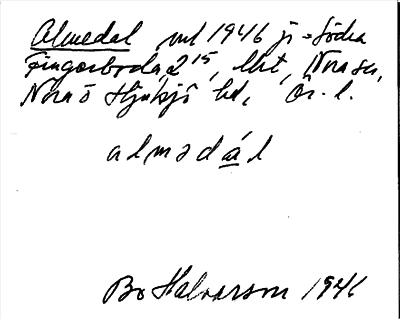 Almedal, ml 1946 js Södra
Fingerboda 2¹⁵, lht, Nora sn,
Nora o Hjulsjö hd, Ör. l.
almədál
Bo Halvarson 1946